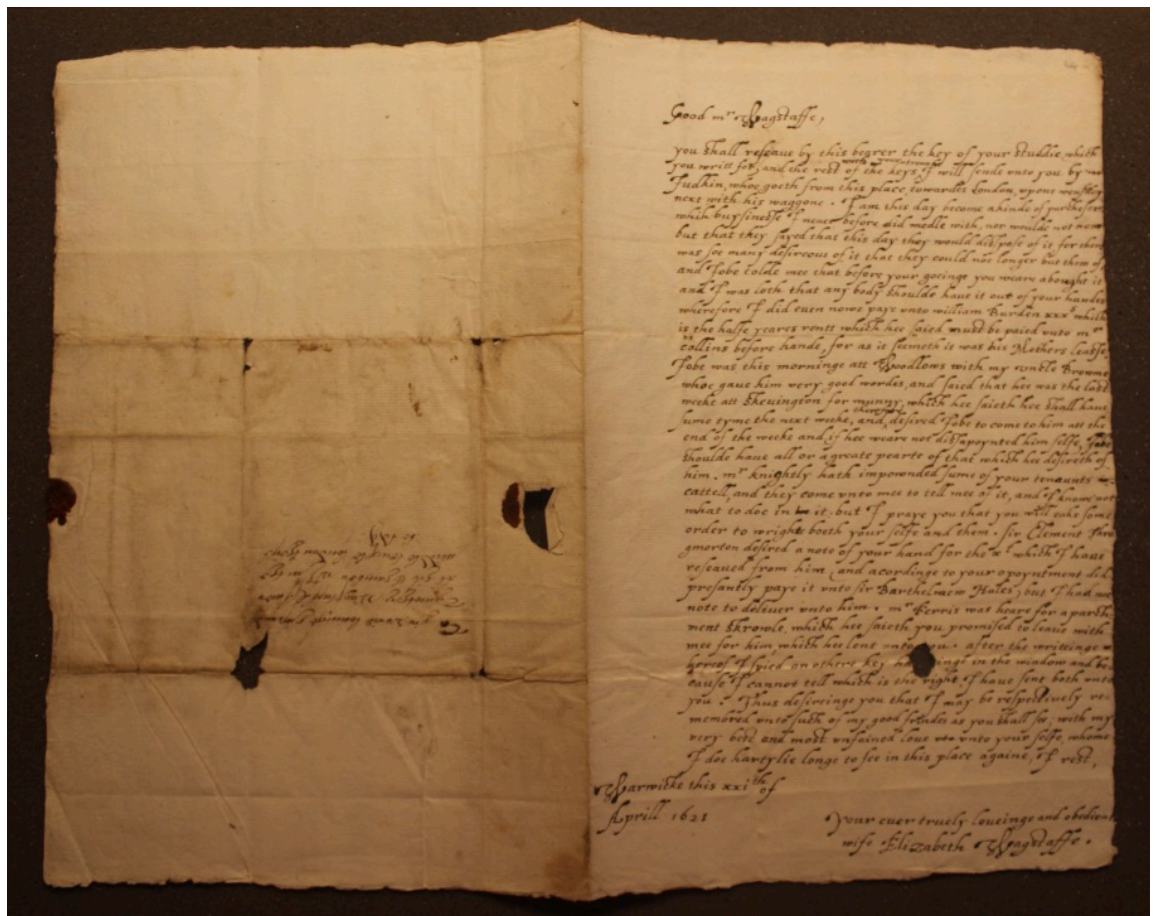 Good mr Wagstaffe,
you shall reseave by this berer the key of your studdie, which
you writt for, and the rest of the keys I will sende unto you by
Judkin, whoe goeth from this place towardes London, upone
next with his waggone. I am this day become a kinde of purcheser
which buysinesse I never before did medle with, nor woulde not now
but that they sayed that this day they would dispose of it for there
was soe many desireous of it that they could not longer put them of
and Jobe tolde mee that before your goeinge you weare abought it
and I was loth that any body shoulde have it out of your handes
wherefore I did even nowe paye unto William Burden xxxs which
is the halfe yeares rentt which hee saied must be paied unto mr
Collins before hande, for as it seemeth it was his Mothers leasse.
Jobe was this morninge att Woodlows with my unckle Browne
whoe gave him very good wordes, and saied that hee was the last
weeke att Shevington for munny, which hee saieth hee shall have
sume tyme the next weeke, and desired Jobe to come to him att the
end of the weeke and if hee weare not disapoynted him selfe, Jobe
shoulde have all or a greate pearte of that which hee desireth of
him. mr Knightly hath impownded sume of your tenaunts
cattell, and they come unto mee to tell mee of it, and I knowe not
what to doe in it: but I praye you that you will take some
order to wright boeth your selfe and them. Sir Clement Thro
gmorton desired a note of your hand for the xl which I have
reseaved from him, and acordinge to your apoyntment did
presantly paye it unto Sir Barthelmew Hales; but I had no
note to deliver unto him. mr Ferris was heare for a parch
ment skrowle, which hee saieth you promised to leave with
mee for him which hee lent unto you. after the writtinge
hereof I spied an othere key hanginge in the window and be
cause I cannot tell which is the right I have sent both unto
you. Thus desireinge you that I may be respectively re
membred unto such of my good frindes as you shall see; with my
very best and most unfained love unto your selfe, whome
I doe hartylie longe to see in this place againe, I rest,
Warwicke this xxith of
Aprill 1621
Your ever truely loveinge and obedient
wife Elizabeth Wagstaffe.